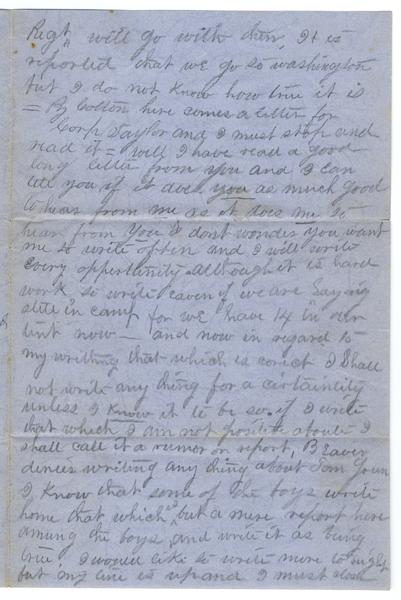 Regt will go with them, It is
reported that we go to washington
but I do not know how true it is
= By Golton here comes a letter for
Corp Taylor and I must stop and
read it = well I have read a good
long letter from you and I can
tell you if it does you as much good
to hear from me as it does me to
hear from you I dont wonder you want
me to write often and I will write
every oppertunity although it is hard
work to write eaven if we are Laying
still in camp for we have 14 in our
tent now — and now in regard to
my writing that which is corect I Shall
not write any thing for a certaintity
unless I know it to be so. if I write
that which I am not positive aboute I
shall call it a rumor or report, B Eaver
denies writing any thing about Tom
I know that some of the boys write
home that which is but a mere report here
among the boys and write it as being
true, I would like to write more to night
but my time is up and I must close